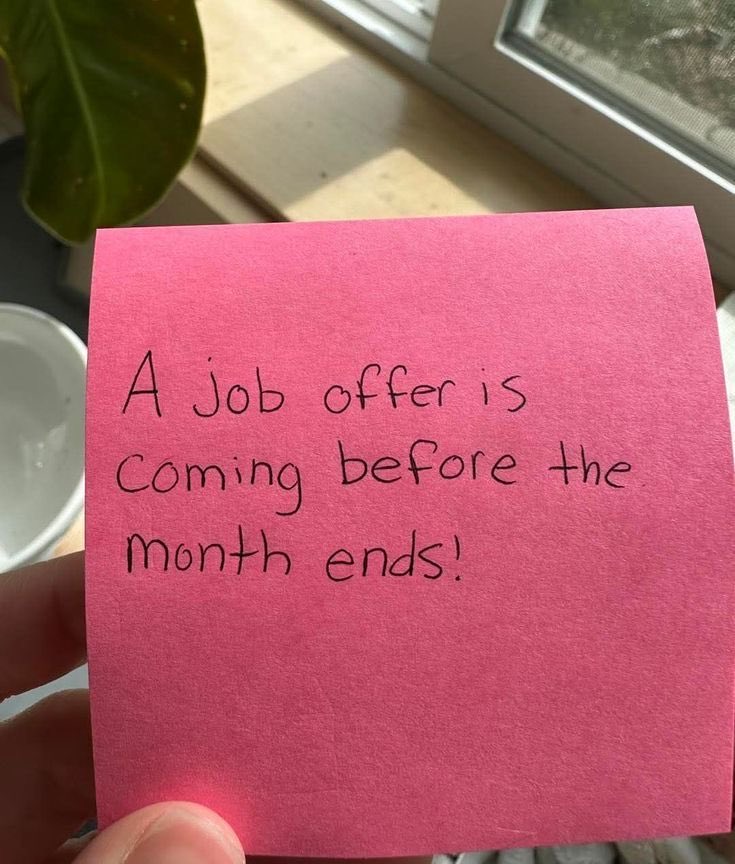 A job offer is
coming before the
month ends!